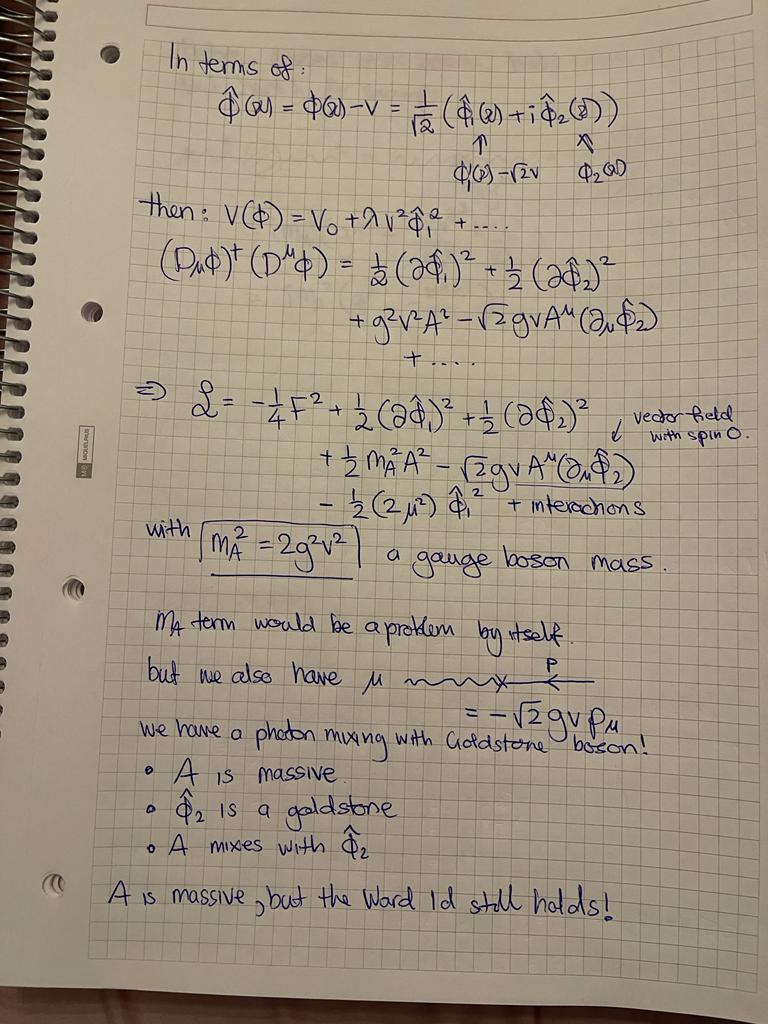 In terms of:
φ̂(x) = φ(x) - v = 1/√2 (φ̂₁(x) + i φ̂₂(x))
↑ ↖
φ₁(x) - √2v φ₂(x)
then: V(φ) = V₀ + λv²φ̂₁² + ....
(Dμφ)† (D^μφ) = 1/2 (∂φ̂₁)² + 1/2 (∂φ̂₂)²
+ g²v²A² - √2 gvA^μ(∂μφ̂₂)
+ ....
⇒ ℒ = -1/4 F² + 1/2 (∂φ̂₁)² + 1/2 (∂φ̂₂)²
vector field
with spin 0.
+ 1/2 m_A² A² - √2 gvA^μ(∂μφ̂₂)
- 1/2 (2μ²) φ̂₁² + interactions
with m_A² = 2g²v² a gauge boson mass.
m_A term would be a problem by itself.
but we also have μ p
= -√2 gv pμ
we have a photon mixing with Goldstone boson!
• A is massive
• φ̂₂ is a goldstone
• A mixes with φ̂₂
A is massive, but the Ward Id still holds!
MIQUELRIUS